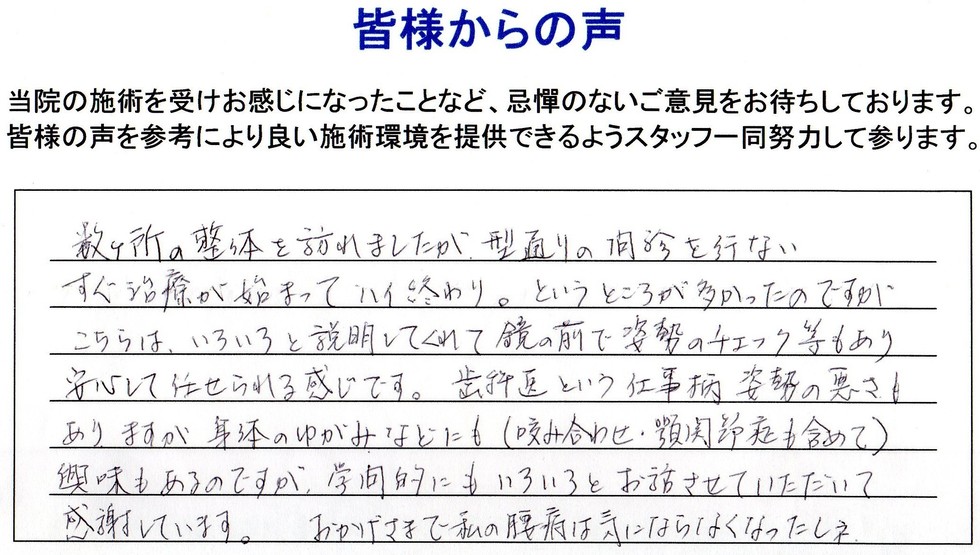 皆様からの声
当院の施術を受けお感じになったことなど、忌憚のないご意見をお待ちしております。
皆様の声を参考により良い施術環境を提供できるようスタッフ一同努力して参ります。
数ヶ所の整体を訪れましたが、型通りの問診を行ない
すぐ治療が始まってハイ終わり。というところが多かったのですが
こちらは、いろいろと説明してくれて鏡の前で姿勢のチェック等もあり
安心して任せられる感じです。歯科医という仕事柄 姿勢の悪さも
ありますが 身体のゆがみなどにも(咬み合わせ・顎関節症も含めて)
興味もあるのですが、学問的にもいろいろとお話させていただいて
感謝しています。 おかげさまで私の腰痛は気にならなくなったしネ